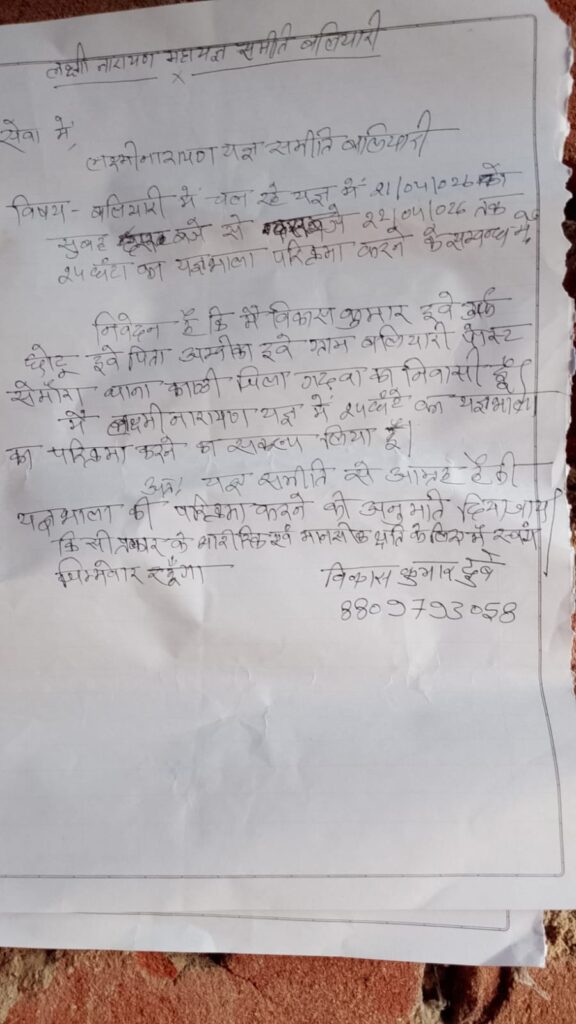 लक्ष्मी नारायण महायज्ञ समीति बलियारी
सेवा में,
लक्ष्मीनारायण यज्ञ समीति बलियारी
विषय - बलियारी में चल रहे यज्ञ में 21/04/026 को
सुबह बजे से बजे 22/04/026 तक
24 घंटा का यज्ञशाला परिक्रमा करने के सम्बन्ध में,
निवेदन है कि मैं विकास कुमार दुबे उर्फ
छोटू दुबे पिता अम्बीका दुबे ग्राम बलियारी पोस्ट
सेमौरा थाना काण्डी जिला गढ़वा का निवासी हूँ।
मैं लक्ष्मी नारायण यज्ञ में 24 घंटे का यज्ञशाला
का परिक्रमा करने का सकल्प लिया हूँ।
अतः यज्ञ समीति से आग्रह है की
यज्ञशाला की परिक्रमा करने की अनुमति दिया जाय
किसी प्रकार के शारीरिक एवं मानसीक क्षति के लिए मैं स्वयं
जिम्मेवार रहूँगा
विकास कुमार दुबे
8809793058